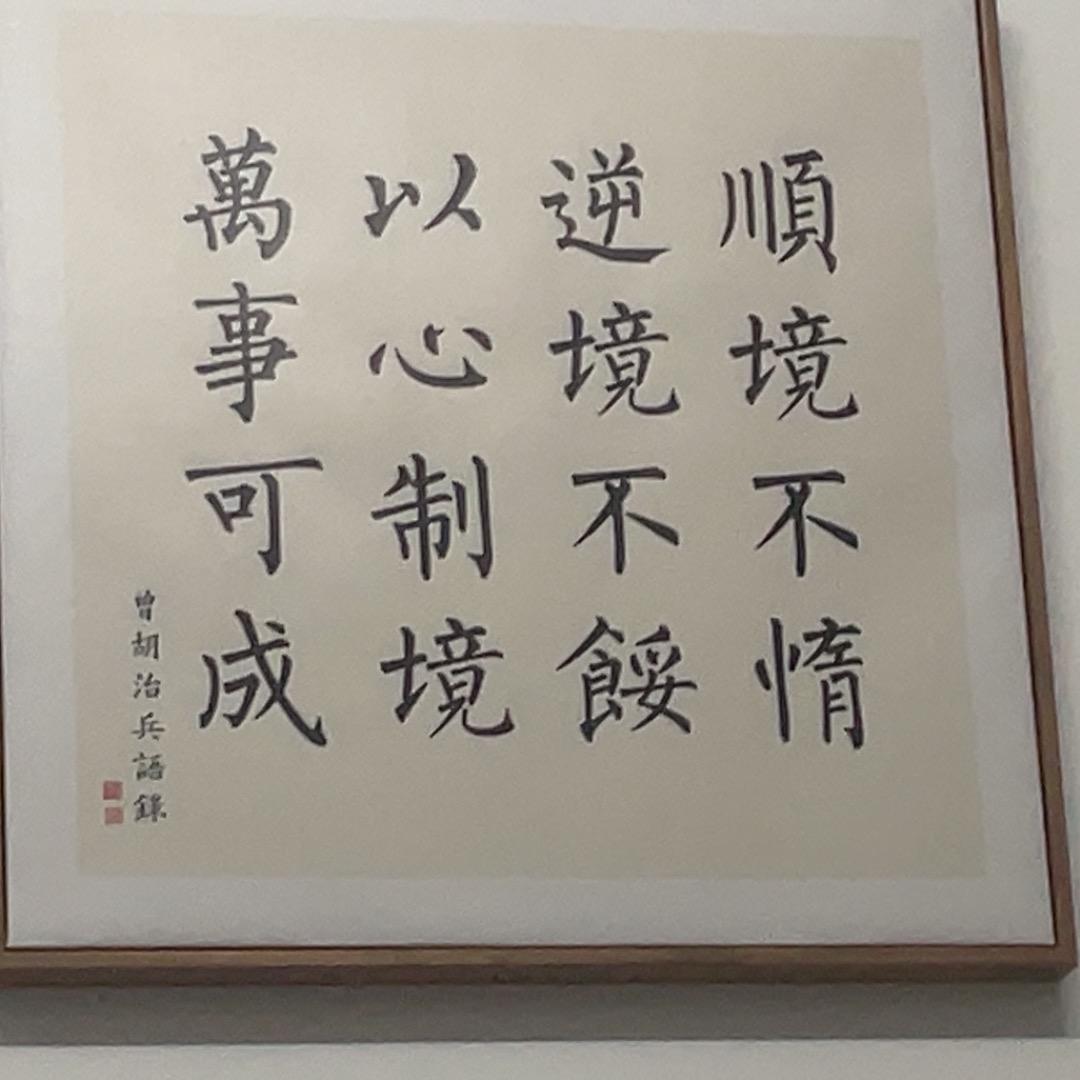 順境不惰
逆境不餒
以心制境
萬事可成
曾胡治兵語錄